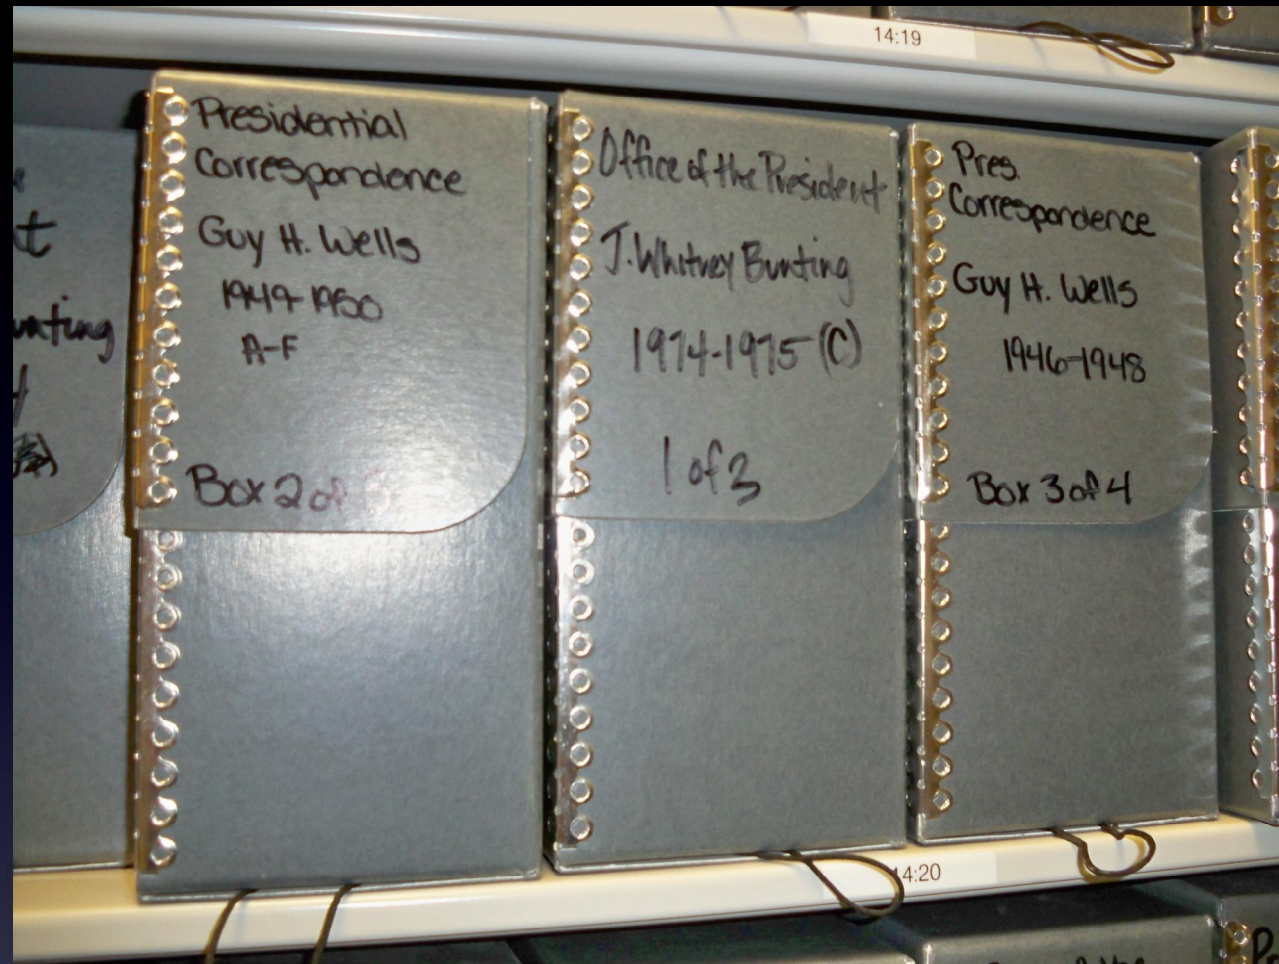 14:19
t
unting
Presidential
Correspondence
Guy H. Wells
1949-1950
A-F
Box 2 of
Office of the President
J. Whitney Bunting
1974-1975 (C)
1 of 3
Pres.
Correspondence
Guy H. Wells
1946-1948
Box 3 of 4
14:20